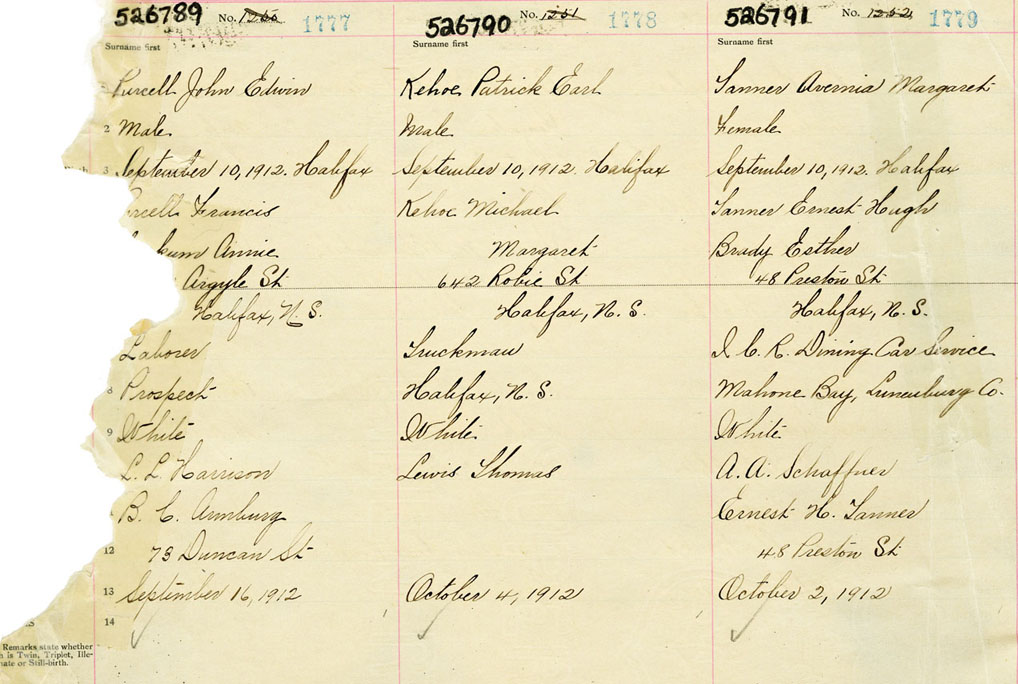 526789 No. 1250 1777
Surname first
Purcell John Edwin
2 Male
3 September 10, 1912. Halifax
rcell Francis
kum Annie
Argyle St
Halifax, N. S.
Laborer
8 Prospect
9 White
L. L. Harrison
B. C. Armburg
12 73 Duncan St
13 September 16, 1912
14
Remarks state whether
is Twin, Triplet, Ille-
ate or Still-birth.
526790 No. 1251 1778
Surname first
Kehoe Patrick Earl
Male
September 10, 1912. Halifax
Kehoe Michael
Margaret
642 Robie St
Halifax, N. S.
Truckman
Halifax, N. S.
White
Lewis Thomas
October 4, 1912
526791 No. 1252 1779
Surname first
Tanner Avernia Margaret
Female
September 10, 1912. Halifax
Tanner Ernest Hugh
Brady Esther
48 Preston St
Halifax, N. S.
I. C. R. Dining Car Service
Mahone Bay, Lunenburg Co.
White
A. A. Schaffner
Ernest H. Tanner
48 Preston St
October 2, 1912